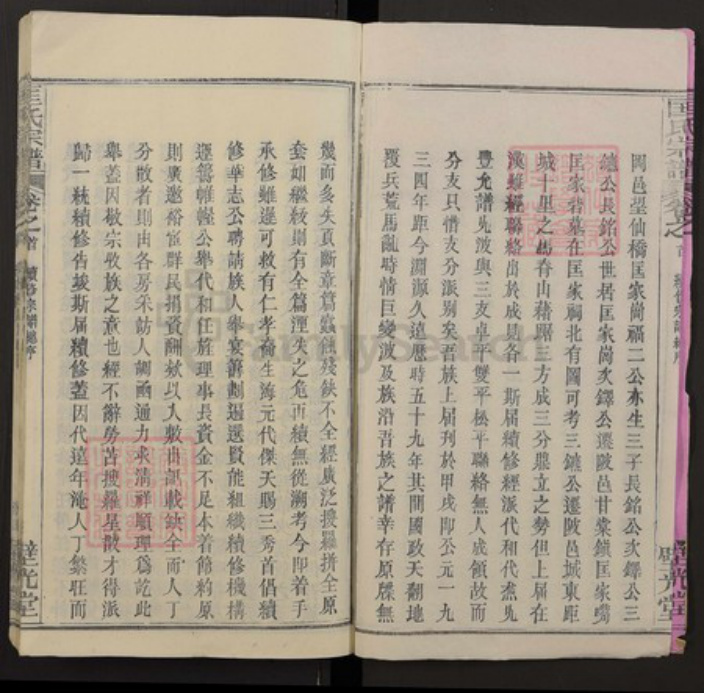 岡邑望仙橋匡家崗福二公亦生三子長銘公次鐸公三
鑪公長銘公世居匡家崗次鐸公遷陂邑甘棠鎮匡家嘴
匡家砦墓在匡家祠北有圖可考三鑪公遷陂邑城東距
城十里之馬脊山藉踞三方成三分鼎立之勢但上屆在
漢雖經聯絡出於成見各一斯屆續修經派代和代焘先
豐允譜先波與三支卓平雙平松平聯絡無人成領故而
分支只惜支分派别矣吾族上屆刊於甲戌即公元一九
三四年距今淵源久遠歷時五十九年其間國政天翻地
覆兵荒馬亂時情巨變波及族沿吾族之譜幸存原牒無
幾而多失頁斷章篇蟲蝕殘缺不全經廣泛搜羅拼全原
套如繼紋則有全篇湮失之危再續無從溯考今即着手
承修雖遲可救有仁孝裔生海元代傑天賜三秀首倡續
修華志公聘請族人舉宴籌劃遍選賢能組織續修機構
運籌帷幄公舉代和任旌理事長資金不足本着節約原
則廣邀裕宦群民捐資酬欵以人數由記載缺全而人丁
分散者則由各房采訪人調函通力求清祥順理爲訖此
舉蓋因敬宗敬族之意也經不辭勞苦搜羅星散才得派
歸一統續修告竣斯屆續修蓋因代遠年淹人丁繁旺而
匡氏宗譜
卷之首
璧光堂
匡氏宗譜
卷之首
璧光堂
FamilySearch